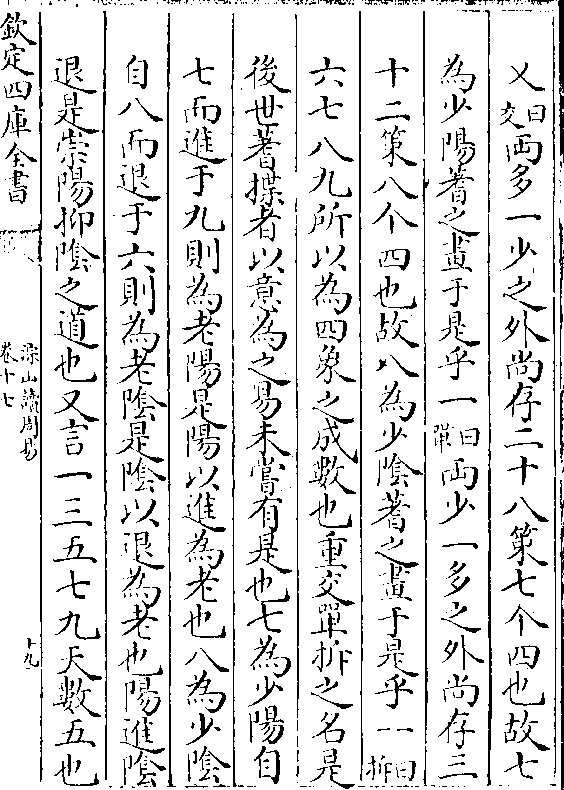 乂曰交兩多一少之外尚存二十八策七个四也故七
為少陽蓍之畫于是乎一曰單兩少一多之外尚存三
十二策八个四也故八為少陰蓍之畫于是乎一一曰拆
六七八九所以為四象之成數也重交單拆之名是
後世蓍揲者以意為之易未嘗有是也七為少陽自
七而進于九則為老陽是陽以進為老也八為少陰
自八而退于六則為老陰是陰以退為老也陽進陰
退是崇陽抑陰之道也又言一三五七九天數五也
欽定四庫全書
深山讀周易
卷十七
十九